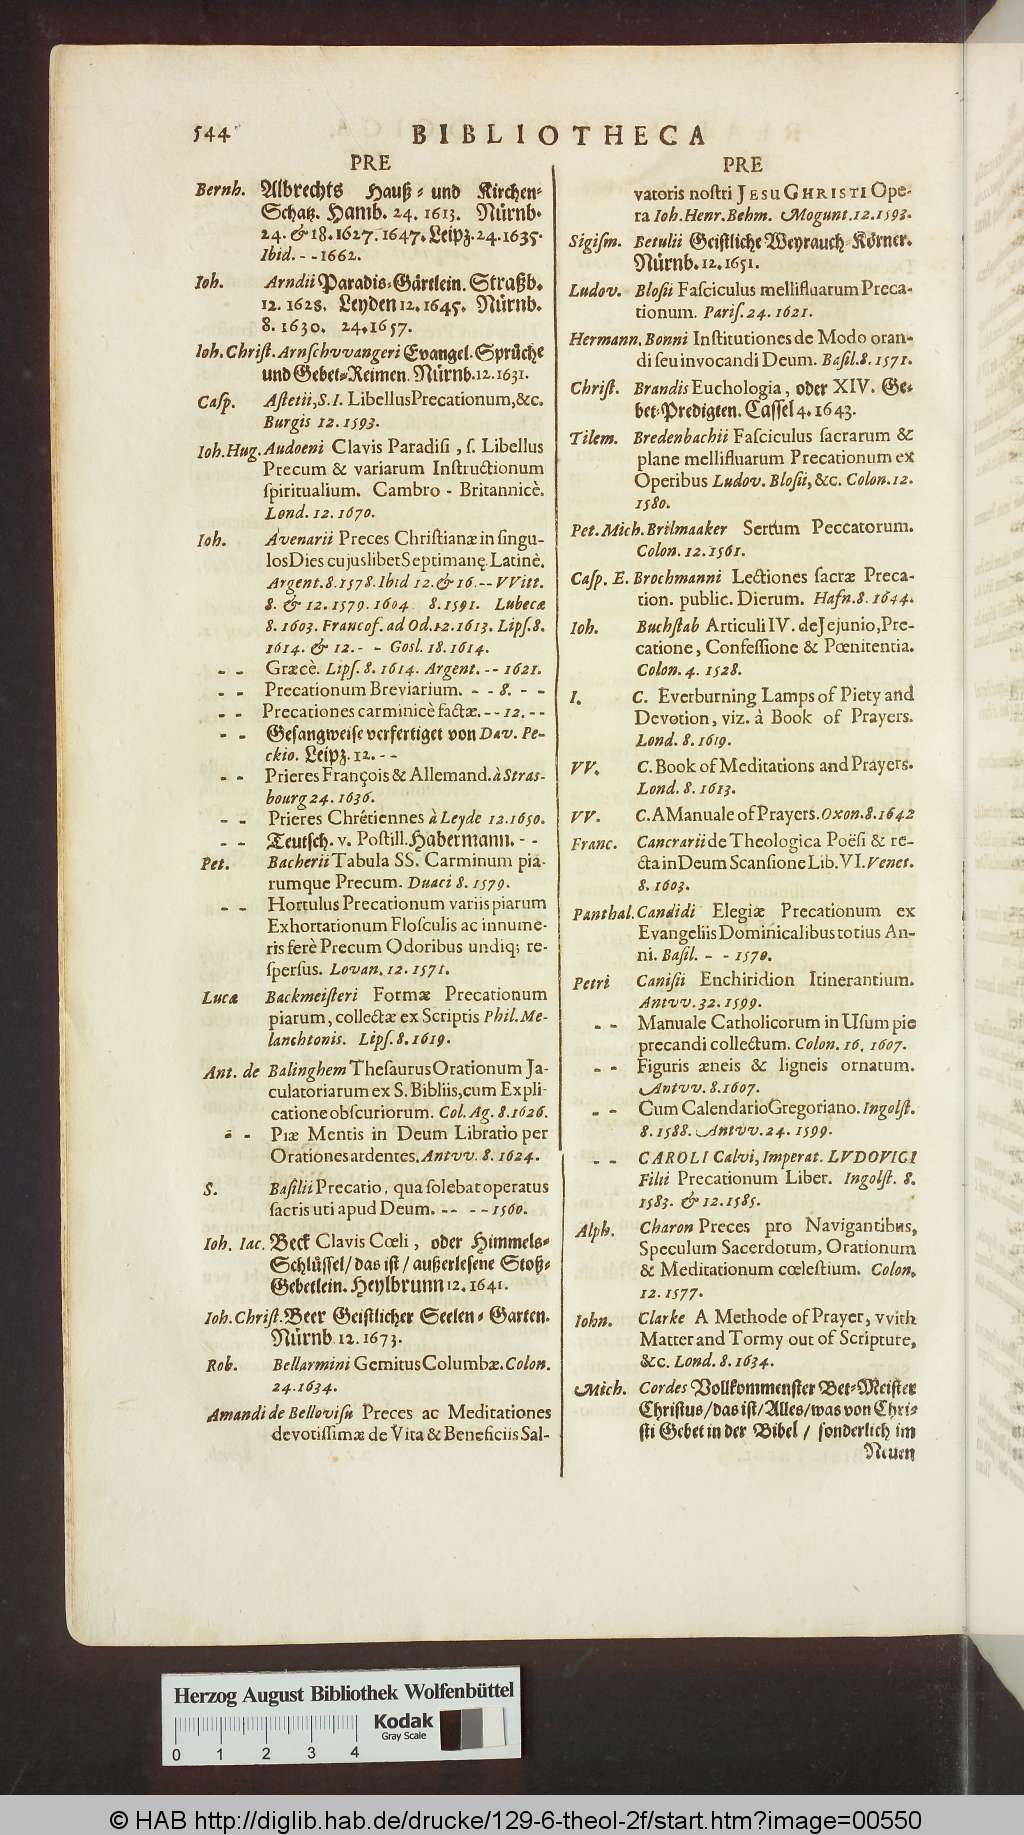 544 BIBLIOTHECA
PRE
Bernh. Albrechts Hauß- und Kirchen-
Schatz. Hamb. 24. 1613. Nürnb.
24. & 18. 1627. 1647. Leipz. 24. 1635.
Ibid. - - 1662.
Ioh. Arndii Paradis-Gärtlein. Straßb.
12. 1628. Leyden 12. 1645. Nürnb.
8. 1630. 24. 1657.
Ioh. Christ. Arnschvvangeri Evangel. Sprüche
und Gebet-Reimen. Nürnb. 12. 1631.
Casp. Astetii, S. I. Libellus Precationum, &c.
Burgis 12. 1593.
Ioh. Hug. Audoeni Clavis Paradisi, s. Libellus
Precum & variarum Instructionum
spiritualium. Cambro - Britannicè.
Lond. 12. 1670.
Ioh. Avenarii Preces Christianæ in singu-
los Dies cujuslibet Septimanę. Latinè.
Argent. 8. 1578. Ibid 12. & 16. - - VVitt.
8. & 12. 1579. 1604 8. 1591. Lubecæ
8. 1603. Francof. ad Od. 12. 1613. Lips. 8.
1614. & 12. - - Gosl. 18. 1614.
- - Græcè. Lips. 8. 1614. Argent. - - 1621.
- - Precationum Breviarium. - - 8. - -
- - Precationes carminicè factæ. - - 12. - -
- - Gesangweise verfertiget von Dav. Pe-
ckio. Leipz. 12. - -
- - Prieres François & Allemand. à Stras-
bourg 24. 1636.
- - Prieres Chrêtiennes à Leyde 12. 1650.
- - Teutsch. v. Postill. Habermann. - -
Pet. Bacherii Tabula SS. Carminum pia-
rumque Precum. Duaci 8. 1579.
- - Hortulus Precationum variis piarum
Exhortationum Flosculis ac innume-
ris ferè Precum Odoribus undiq; re-
spersus. Lovan. 12. 1571.
Lucæ Backmeisteri Formæ Precationum
piarum, collectæ ex Scriptis Phil. Me-
lanchtonis. Lips. 8. 1619.
Ant. de Balinghem Thesaurus Orationum Ja-
culatoriarum ex S. Bibliis, cum Expli-
catione obscuriorum. Col. Ag. 8. 1626.
- - Piæ Mentis in Deum Libratio per
Orationes ardentes. Antvv. 8. 1624.
S. Basilii Precatio, qua solebat operatus
sacris uti apud Deum. - - - - 1560.
Ioh. Iac. Beck Clavis Cœli, oder Himmels-
Schlüssel/ das ist/ außerlesene Stoß-
Gebetlein. Heylbrunn 12. 1641.
Ioh. Christ. Beer Geistlicher Seelen-Garten.
Nürnb. 12. 1673.
Rob. Bellarmini Gemitus Columbæ. Colon.
24. 1634.
Amandi de Bellovisu Preces ac Meditationes
devotissimæ de Vita & Beneficiis Sal-
PRE
vatoris nostri JESU CHRISTI Ope-
ra Ioh. Henr. Behm. Mogunt. 12. 1593.
Sigism. Betulii Geistliche Weyrauch-Körner.
Nürnb. 12. 1651.
Ludov. Blosii Fasciculus mellifluarum Preca-
tionum. Paris. 24. 1621.
Hermann. Bonni Institutiones de Modo oran-
di seu invocandi Deum. Basil. 8. 1571.
Christ. Brandis Euchologia, oder XIV. Ge-
bet-Predigten. Cassel 4. 1643.
Tilem. Bredenbachii Fasciculus sacrarum &
plane mellifluarum Precationum ex
Operibus Ludov. Blosii, &c. Colon. 12.
1580.
Pet. Mich. Brilmaaker Sertum Peccatorum.
Colon. 12. 1561.
Casp. E. Brochmanni Lectiones sacræ Preca-
tion. public. Dierum. Hafn. 8. 1644.
Ioh. Buchstab Articuli IV. de Jejunio, Pre-
catione, Confessione & Pœnitentia.
Colon. 4. 1528.
I. C. Everburning Lamps of Piety and
Devotion, viz. à Book of Prayers.
Lond. 8. 1619.
VV. C. Book of Meditations and Prayers.
Lond. 8. 1613.
VV. C. A Manuale of Prayers. Oxon. 8. 1642
Franc. Cancrarii de Theologica Poësi & re-
cta in Deum Scansione Lib. VI. Venet.
8. 1603.
Panthal. Candidi Elegiæ Precationum ex
Evangeliis Dominicalibus totius An-
ni. Basil. - - 1570.
Petri Canisii Enchiridion Itinerantium.
Antvv. 32. 1599.
- - Manuale Catholicorum in Usum pie
precandi collectum. Colon. 16. 1607.
- - Figuris æneis & ligneis ornatum.
Antvv. 8. 1607.
- - Cum Calendario Gregoriano. Ingolst.
8. 1588. Antvv. 24. 1599.
- - CAROLI Calvi, Imperat. LVDOVICI
Filii Precationum Liber. Ingolst. 8.
1583. & 12. 1585.
Alph. Charon Preces pro Navigantibus,
Speculum Sacerdotum, Orationum
& Meditationum cœlestium. Colon.
12. 1577.
Iohn. Clarke A Methode of Prayer, vvith
Matter and Tormy out of Scripture,
&c. Lond. 8. 1634.
Mich. Cordes Vollkommenster Bet-Meister
Christus/ das ist/ Alles/ was von Chri-
sti Gebet in der Bibel/ sonderlich im
Neuen
Herzog August Bibliothek Wolfenbüttel
Kodak
Gray Scale
0 1 2 3 4
© HAB http://diglib.hab.de/drucke/129-6-theol-2f/start.htm?image=00550